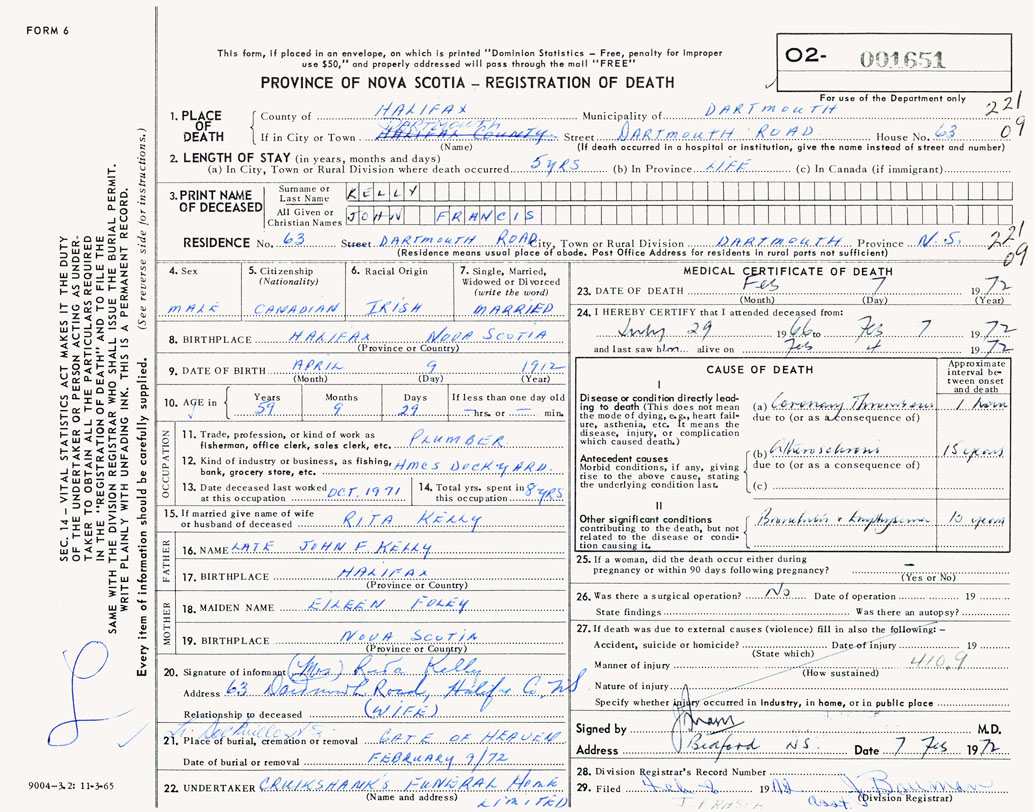 FORM 6
This form, if placed in an envelope, on which is printed "Dominion Statistics – Free, penalty for improper
use $50," and properly addressed will pass through the mail "FREE"
PROVINCE OF NOVA SCOTIA – REGISTRATION OF DEATH
O2- 001651
For use of the Department only
221
09
1. PLACE OF DEATH
County of HALIFAX Municipality of DARTMOUTH
If in City or Town DARTMOUTH HALIFAX COUNTY Street DARTMOUTH ROAD House No. 63
(Name) (If death occurred in a hospital or institution, give the name instead of street and number)
2. LENGTH OF STAY (in years, months and days)
(a) In City, Town or Rural Division where death occurred 5 YRS (b) In Province LIFE (c) In Canada (if immigrant)
3. PRINT NAME OF DECEASED
Surname or Last Name KELLY
All Given or Christian Names JOHN FRANCIS
RESIDENCE No. 63 Street DARTMOUTH ROAD City, Town or Rural Division DARTMOUTH Province N.S.
(Residence means usual place of abode. Post Office Address for residents in rural parts not sufficient)
221
09
4. Sex
MALE
5. Citizenship
(Nationality)
CANADIAN
6. Racial Origin
IRISH
7. Single, Married,
Widowed or Divorced
(write the word)
MARRIED
8. BIRTHPLACE HALIFAX NOVA SCOTIA
(Province or Country)
9. DATE OF BIRTH APRIL 9 1912
(Month) (Day) (Year)
10. AGE in Years Months Days If less than one day old
59 9 29 — hrs. or — min.
OCCUPATION
11. Trade, profession, or kind of work as
fisherman, office clerk, sales clerk, etc. PLUMBER
12. Kind of industry or business, as fishing,
bank, grocery store, etc. HMCS DOCKYARD
13. Date deceased last worked
at this occupation OCT. 1971
14. Total yrs. spent in
this occupation 8 YRS
15. If married give name of wife
or husband of deceased RITA KELLY
FATHER
16. NAME LATE JOHN F. KELLY
17. BIRTHPLACE HALIFAX
(Province or Country)
MOTHER
18. MAIDEN NAME EILEEN FOLEY
19. BIRTHPLACE NOVA SCOTIA
(Province or Country)
20. Signature of informant (Mrs.) Rita Kelly
Address 63 Dartmouth Road, Halifax Co. NS
Relationship to deceased (WIFE)
21. Place of burial, cremation or removal GATE OF HEAVEN
Date of burial or removal FEBRUARY 9/72
22. UNDERTAKER CRUIKSHANK'S FUNERAL HOME
(Name and address) LIMITED
MEDICAL CERTIFICATE OF DEATH
23. DATE OF DEATH Feb 7 1972
(Month) (Day) (Year)
24. I HEREBY CERTIFY that I attended deceased from:
July 29 1966 to Feb 7 1972
and last saw him alive on Feb 4 1972
CAUSE OF DEATH
Approximate
interval be-
tween onset
and death
I
Disease or condition directly lead-
ing to death (This does not
mean the mode of dying, e.g., heart fail-
ure, asthenia, etc. It means the
disease, injury, or complication
which caused death.)
(a) Coronary Thrombosis 1 hour
due to (or as a consequence of)
Antecedent causes
Morbid conditions, if any, giving
rise to the above cause, stating
the underlying condition last.
(b) Atherosclerosis 15 years
due to (or as a consequence of)
(c)
II
Other significant conditions
contributing to the death, but not
related to the disease or condi-
tion causing it.
Bronchitis + Emphysema 10 years
25. If a woman, did the death occur either during
pregnancy or within 90 days following pregnancy? –
(Yes or No)
26. Was there a surgical operation? No Date of operation 19
State findings Was there an autopsy?
27. If death was due to external causes (violence) fill in also the following: –
Accident, suicide or homicide? Date of injury 19
(State which)
Manner of injury 410.9
(How sustained)
Nature of injury
Specify whether injury occurred in industry, in home, or in public place
Signed by M.D.
Address Bedford NS. Date 7 Feb 1972
28. Division Registrar's Record Number
29. Filed Feb 8 1972 J. Bauman
J. FRASER Asst. (Division Registrar)
SEC. 14 – VITAL STATISTICS ACT MAKES IT THE DUTY
OF THE UNDERTAKER OR PERSON ACTING AS UNDER-
TAKER TO OBTAIN ALL THE PARTICULARS REQUIRED
IN THE "REGISTRATION OF DEATH" AND TO FILE THE
SAME WITH THE DIVISION REGISTRAR WHO SHALL ISSUE THE BURIAL PERMIT.
WRITE PLAINLY WITH UNFADING INK. THIS IS A PERMANENT RECORD.
Every item of information should be carefully supplied. (See reverse side for instructions.)
9004-3.2: 11-3-65